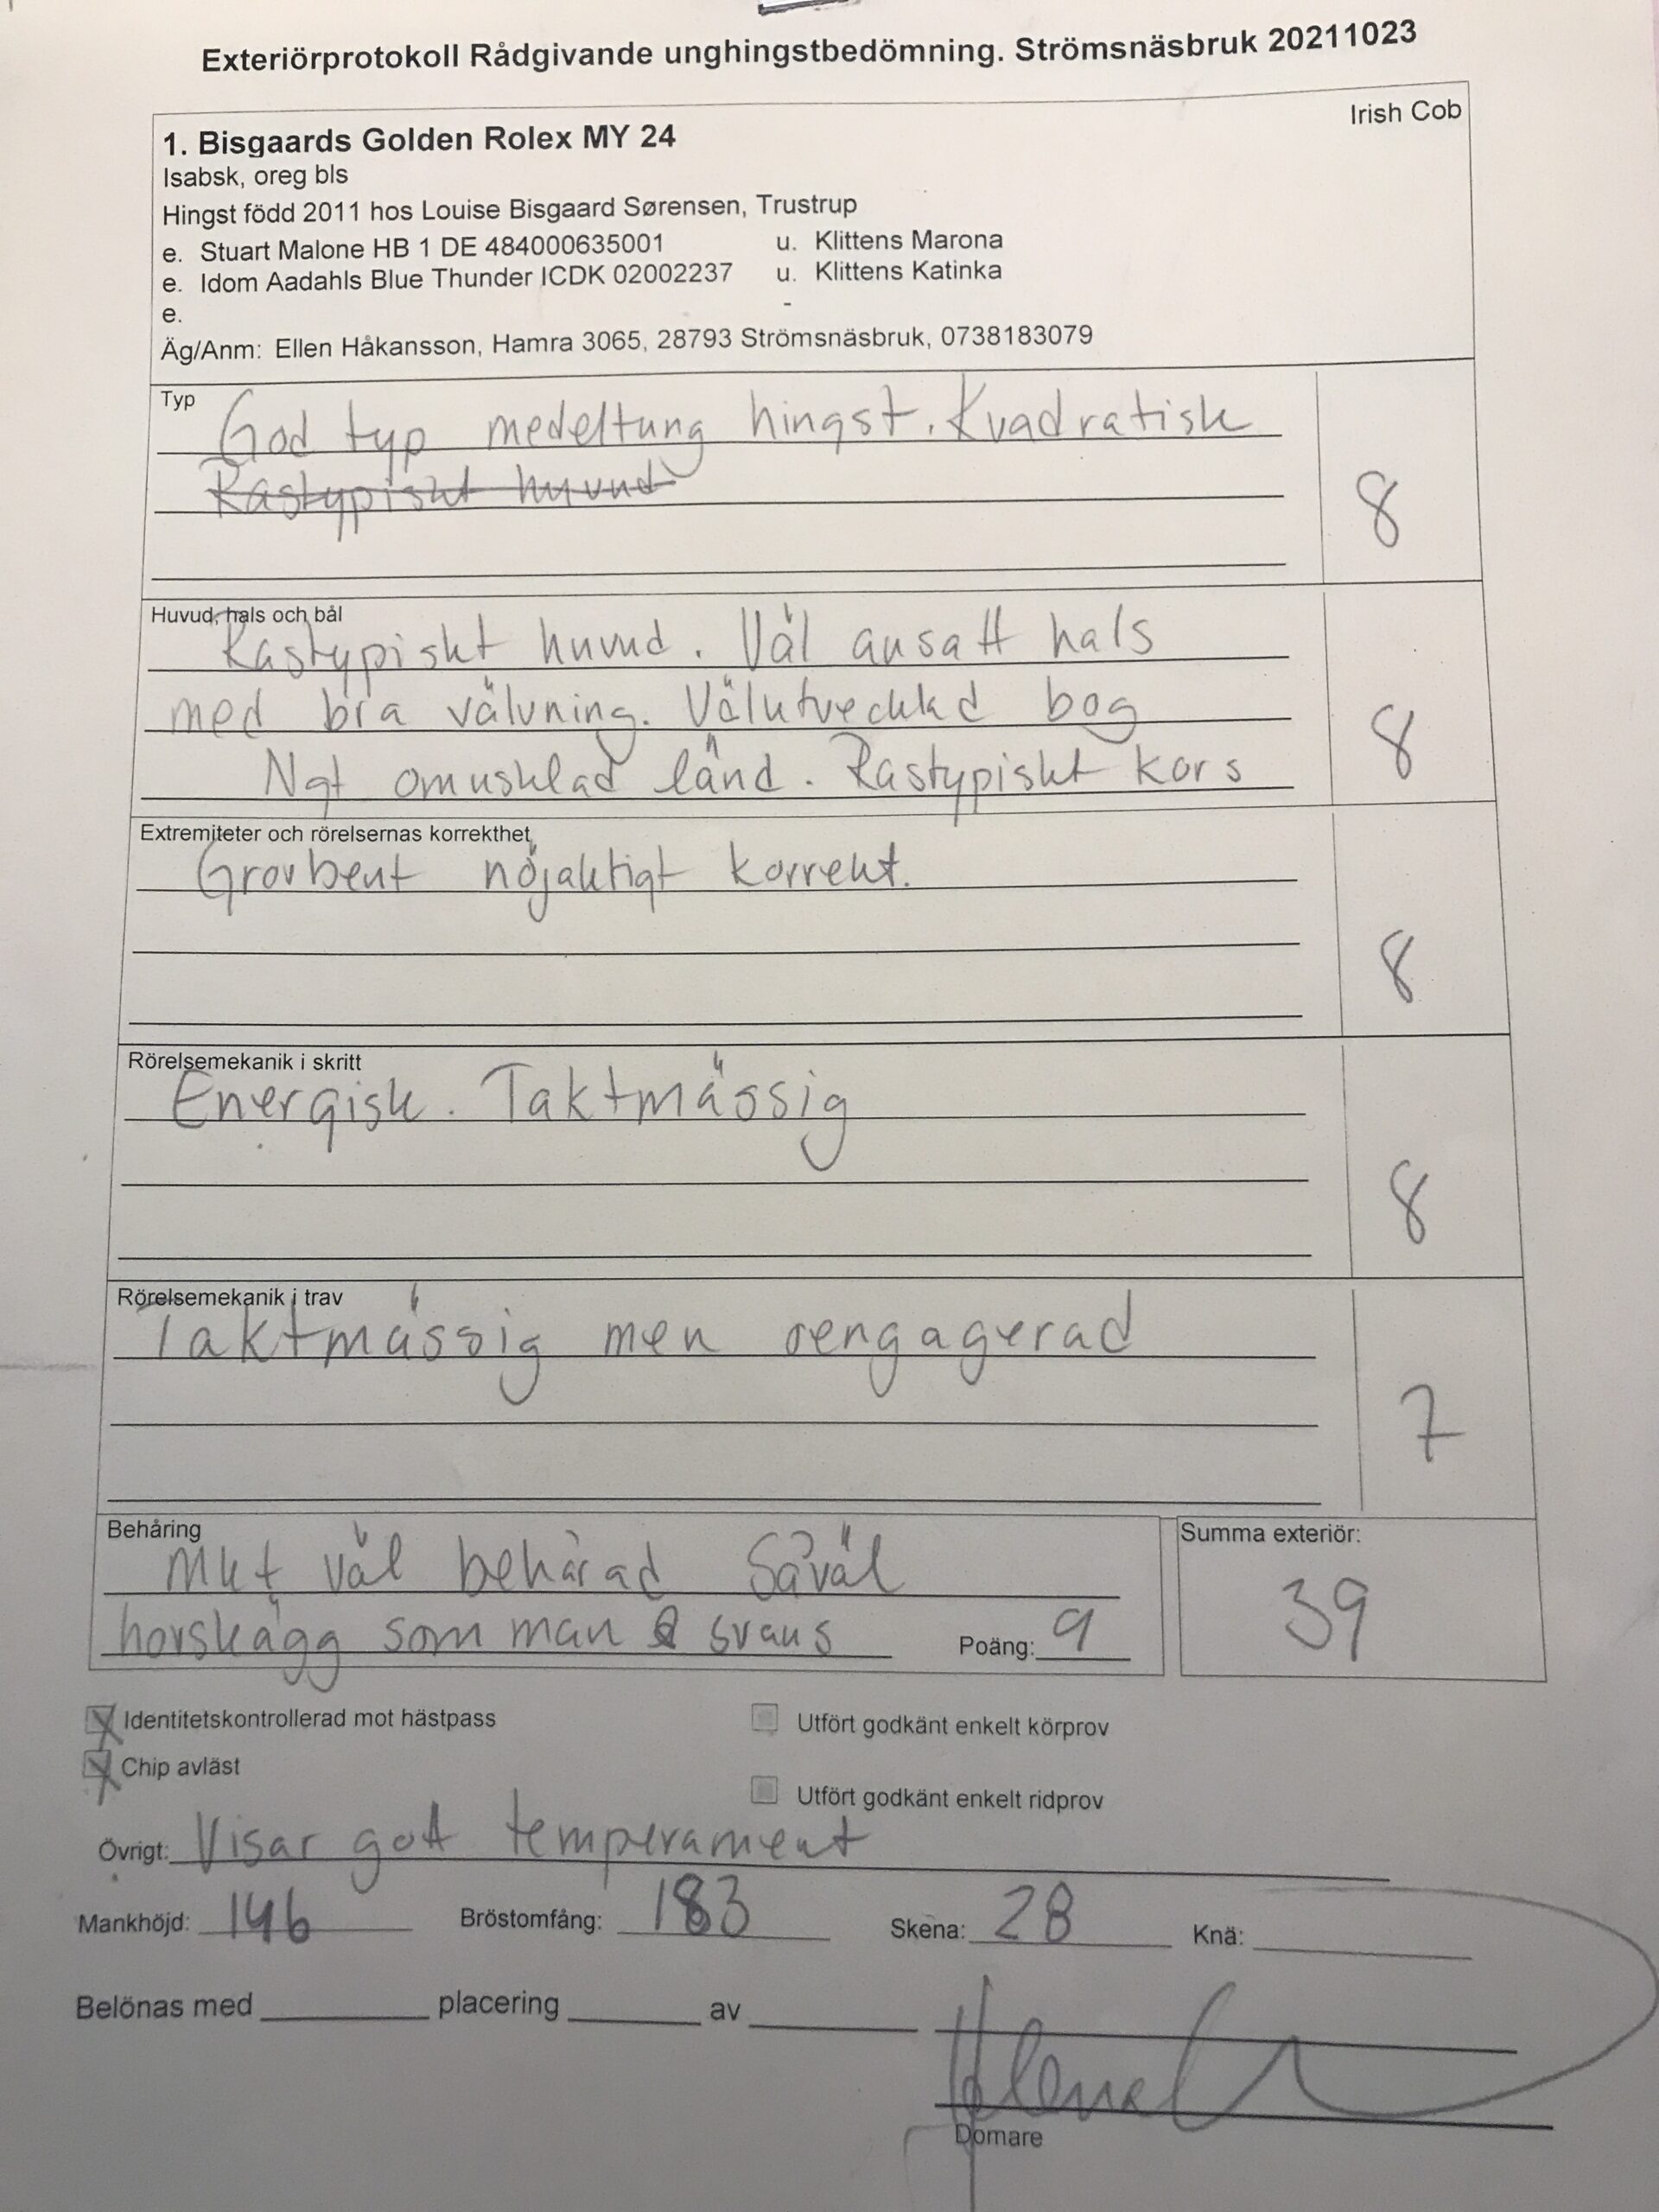 Exteriörprotokoll Rådgivande unghingstbedömning. Strömsnäsbruk 20211023
Irish Cob
1. Bisgaards Golden Rolex MY 24
Isabsk, oreg bls
Hingst född 2011 hos Louise Bisgaard Sørensen, Trustrup
e. Stuart Malone HB 1 DE 484000635001 u. Klittens Marona
e. Idom Aadahls Blue Thunder ICDK 02002237 u. Klittens Katinka
e. -
Äg/Anm: Ellen Håkansson, Hamra 3065, 28793 Strömsnäsbruk, 0738183079
Typ
God typ medeltung hingst. Kvadratisk
Rastypiskt huvud
8
Huvud, hals och bål
Rastypiskt huvud. Väl ansatt hals
med bra välvning. Välutvecklad bog
Ngt omusklad länd. Rastypiskt kors
8
Extremiteter och rörelsernas korrekthet
Grovbent nöjaktigt korrekt.
8
Rörelsemekanik i skritt
Energisk. Taktmässig
8
Rörelsemekanik i trav
Taktmässig men oengagerad
7
Behåring
Mkt väl behårad Såväl
hovskägg som man & svans Poäng: 9
Summa exteriör:
39
Identitetskontrollerad mot hästpass
Utfört godkänt enkelt körprov
Chip avläst
Utfört godkänt enkelt ridprov
Övrigt: Visar gott temperament
Mankhöjd: 146 Bröstomfång: 183 Skena: 28 Knä:
Belönas med placering av
Domare